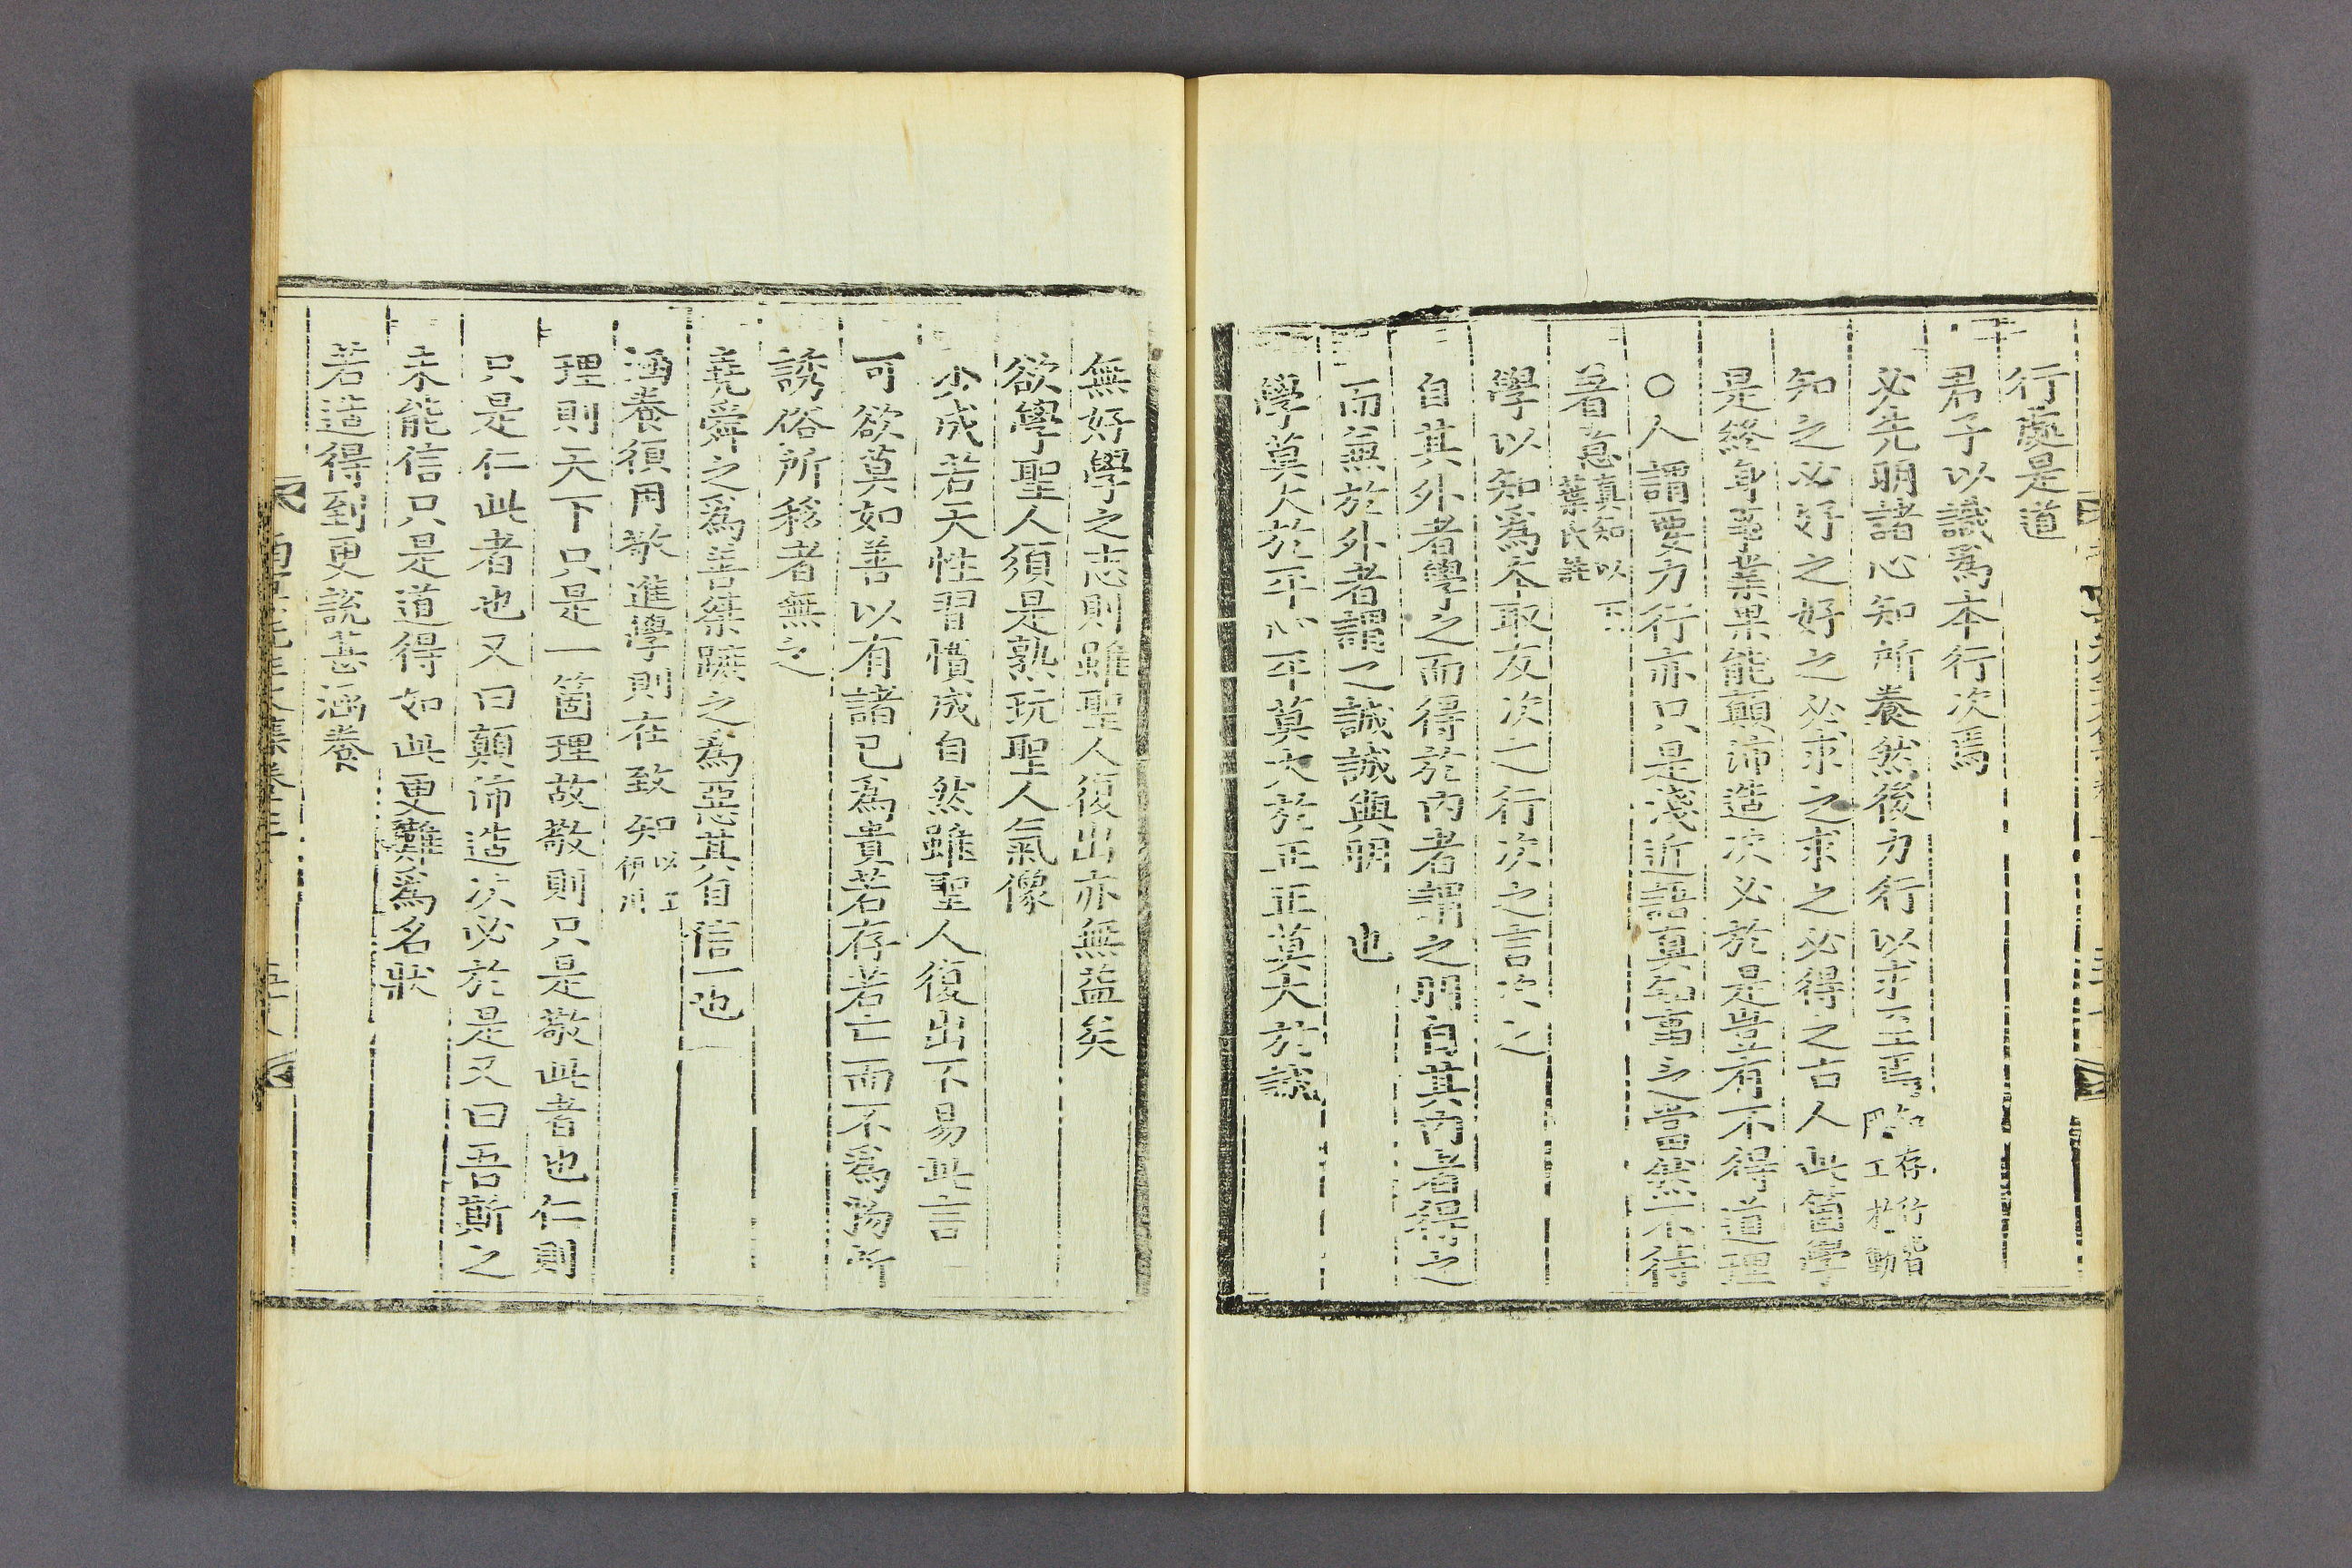 行處是道
君子以識爲本行次焉
必先明諸心知所養然後力行以求至焉知存行皆工於動
知之必好之好之必求之求之必得之古人此箇學
是終身事業果能顚沛造次必於是豈有不得道理
○人謂要力行亦只是淺近語眞知事之當然不待
著意眞知以下葉氏註
學以知爲本取友次之行次之言次之
自其外者學之而得於內者謂之明自其內者得之
而兼於外者謂之誠誠與明 也
學莫大於平心平莫大於正正莫大於誠
無好學之志則雖聖人復出亦無益矣
欲學聖人須是熟玩聖人氣像
少成若天性習慣成自然雖聖人復出不易此言
可欲莫如善以有諸己爲貴若存若亡而不爲物所
誘俗所移者無之
堯舜之爲善桀蹠之爲惡其自信一也
涵養須用敬進學則在致知以上伊川
理則天下只是一箇理故敬則只是敬此者也仁則
只是仁此者也又曰顚沛造次必於是又曰吾斯之
未能信只是道得如此更難爲名狀
若造得到更說甚涵養